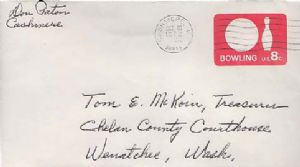 Don Eaton
Cashmere
BOWLING U.S. 8c
Tom E. McKoin, Treasurer
Chelan County Courthouse
Wenatchee, Wash.